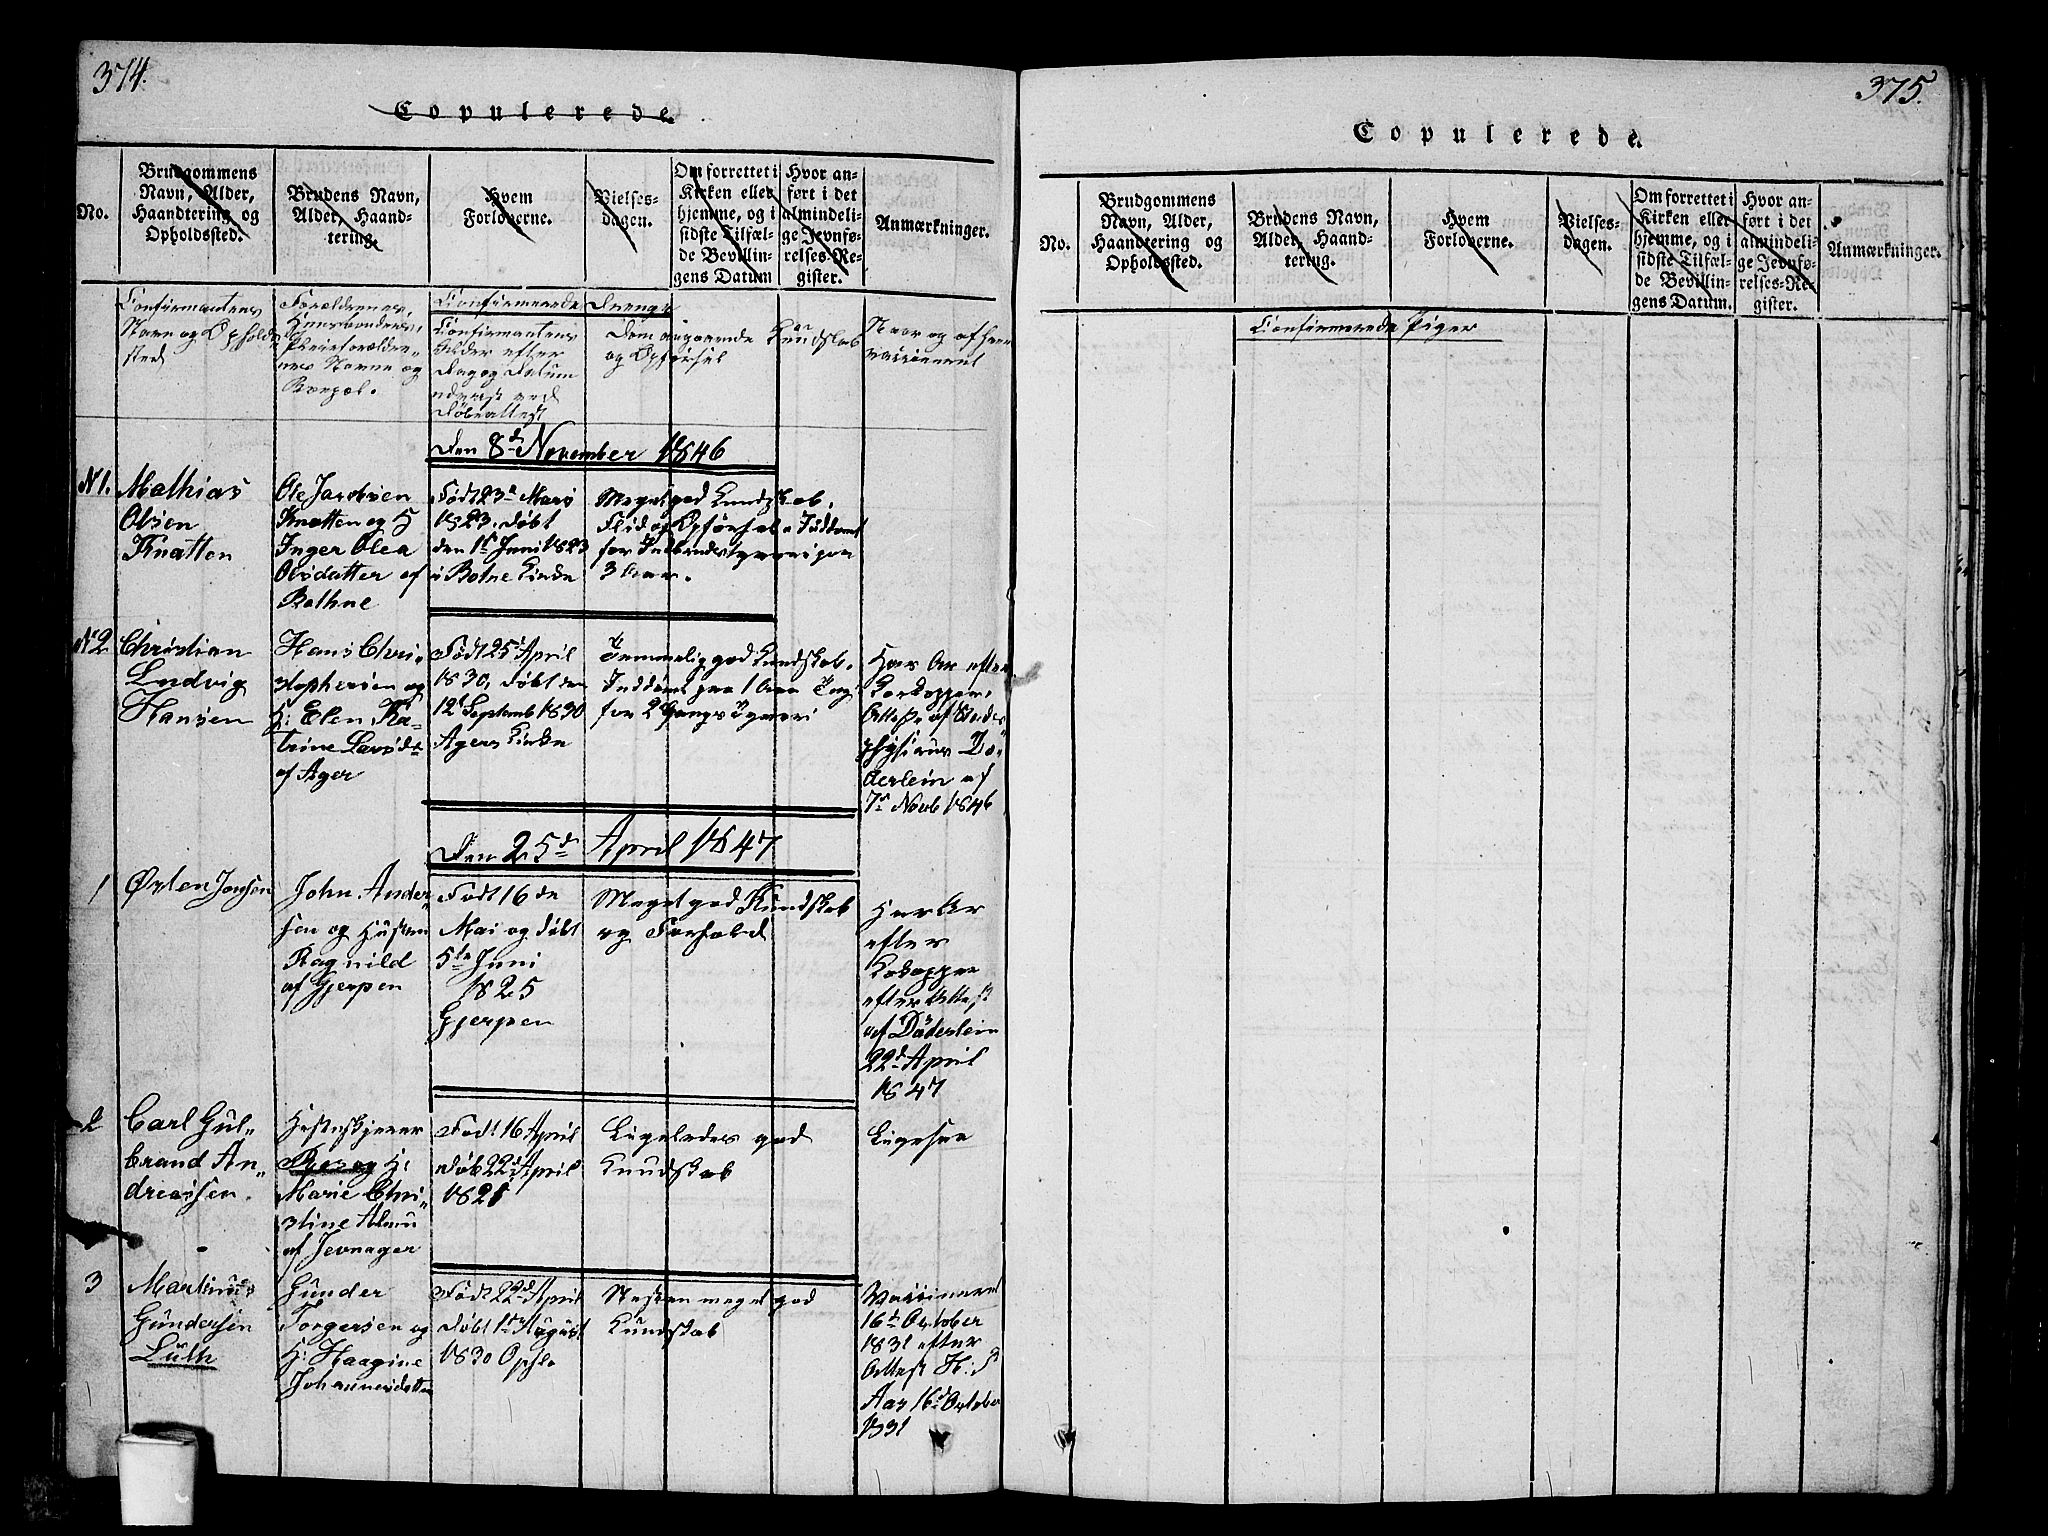 374.
Copulerede.
No.
Brudgommens
Navn, Alder,
Haandtering og
Opholdssted.
Brudens Navn,
Alder, Haand-
tering.
Hvem
Forloverne.
Vielses-
dagen.
Om forrettet i
Kirken eller
hjemme, og i
sidste Tilfæl-
de Bevillin-
gens Datum
Hvor an-
ført i det
almindeli-
ge Jevnfø-
relses-Re-
gister.
Anmærkninger.
Confirmantens
Navn og Opholds
sted
Forældrenes,
Huusbondens,
Pleieforældre-
nes Navne og
Bopæl.
Confirmerede Drenge
Confirmantens
Alder efter
Dag og Datum
ved
Døbeattest
Dem angaaende Kundskab
og Opførsel
Naar og af hvem
vaccineret
Den 8d November 1846
N1.
Mathias
Olsen
Knatten
Ole Jacobsen
Knatten og H
Inger Olea
Olsdatter af
Bothne
Født 23d Mars
1823. Døbt
den 1ste Juni 1823
i Botne Kirke
Meget god Kundskab,
Flid og Opførsel. Inddømt
for Indbrudstyveri paa
3 Aar.
No2
Christian
Ludvig
Hansen
Hans Chri-
stophersen og
H: Elen Ka-
trine Larsdt
af Ager
Født 25d April
1830, Døbt den
12t Septemb 1830
Agers Kirke
Temmelig god Kundskab.
Inddømt paa 1 Aar
for 2 Gangs Tyveri
Har Ar efter
Kokopper,
Attest af Stads
physicus Dö-
derlein af
7de Novb 1846
Den 25d April 1847
1
Øvlen Jonsen
John Ander-
sen og Hustru
Ragnild
af Gjerpen
Født 16de
Mai og døbt
5te Juni
1825
Gjerpen
Meget god Kundskab
og Forhold
Har Ar
efter
Kokopper
efter Attest
af Döderlein
22d April
1847
2
Carl Gul-
brand An-
dreassen.
Hesteskjærer
Berg og H:
Marie Chri-
stine
af Jevnager
Født 16 April
Døb 22d April
1821
Ligeledes god
Kundskab
Ligesaa
3
Martinus
Gundersen
Lüth
Gunder
Torgersen og
H: Haagine
Johannesdatter
Født 22d April
Døbt 1ste August
1830 Opslo
Næsten meget god
Kundskab
Vaccineret
16d October
1831 efter
Attest H:
Aas 16d October
1831
375.
Copulerede.
No.
Brudgommens
Navn, Alder,
Haandtering og
Opholdssted.
Brudens Navn,
Alder, Haand-
tering.
Hvem
Forloverne.
Vielses-
dagen.
Om forrettet i
Kirken eller
hjemme, og i
sidste Tilfæl-
de Bevillin-
gens Datum.
Hvor an-
ført i det
almindeli-
ge Jevnfø-
relses-Re-
gister.
Anmærkninger.
Confirmerede Piger